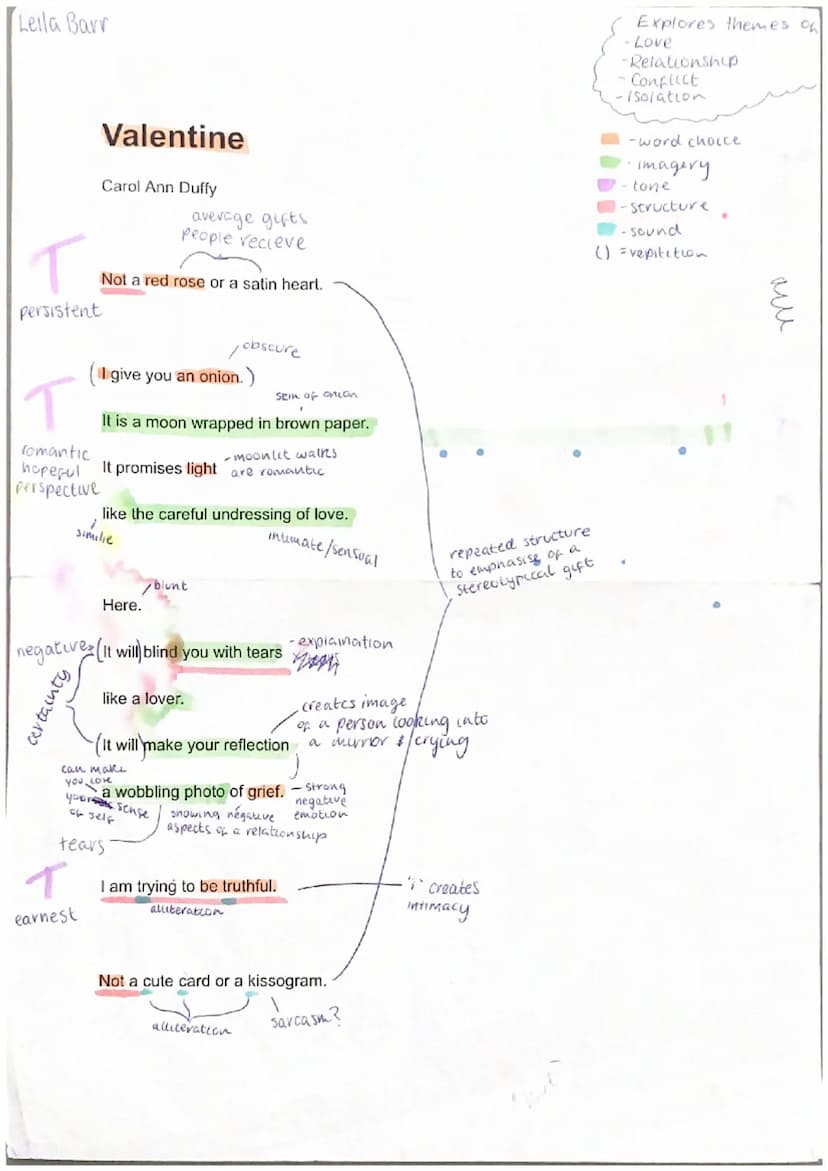 Leila Barr
Explores themes of
- Love
- Relationship
- Conflict
- Isolation
Valentine
- word choice
- imagery
- tone
- structure
- sound
() = repitition
Carol Ann Duffy
average gifts
people recieve
T
persistent
Not a red rose or a satin heart.
obscure
(I give you an onion.)
skin of onion
T
It is a moon wrapped in brown paper.
romantic
hopeful
perspective
It promises light
- moonlit walks
are romantic
like the careful undressing of love.
similie
intimate/sensual
repeated structure
to emphasise of a
stereotypical gift
blunt
Here.
negative
(It will) blind you with tears
- explaination
certainty
like a lover.
creates image
of a person looking into
a mirror & crying
(It will) make your reflection
can make
you lose
sense
of self
a wobbling photo of grief.
- strong
negative
emotion
showing negative
aspects of a relationship
tears
T
earnest
I am trying to be truthful.
alliteration
'I' creates
intimacy
Not a cute card or a kissogram.
alliteration
sarcasm?